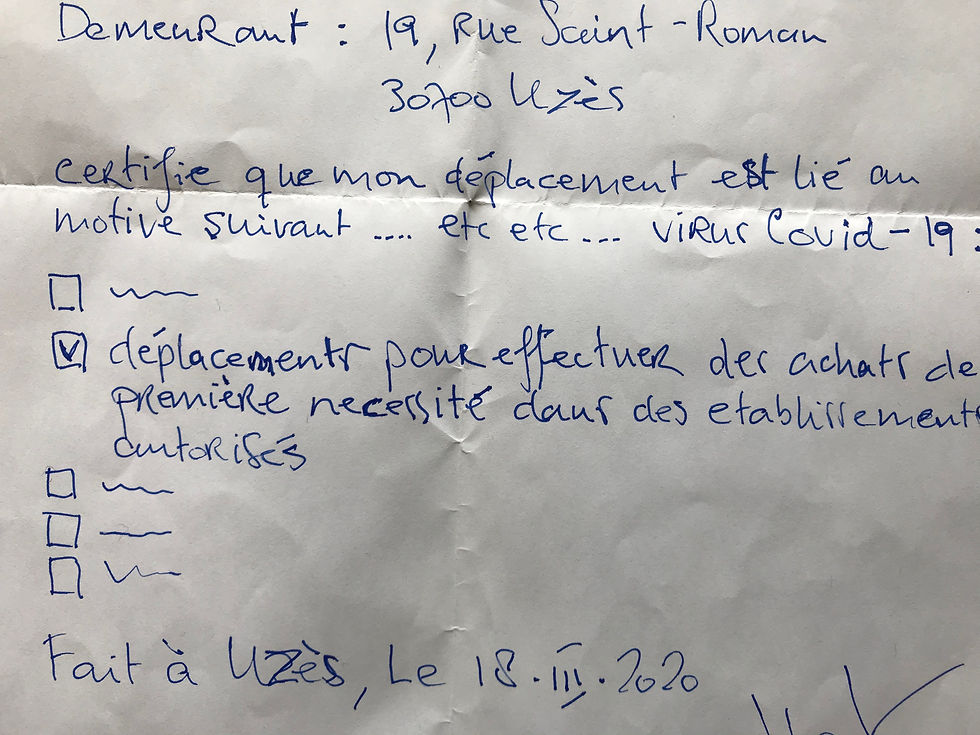 Demeurant : 19, Rue Saint-Roman
30700 Uzès
certifie que mon déplacement est lié au
motive suivant .... etc etc ... virus Covid-19 :
☐
☑ déplacements pour effectuer des achats de
première necessité dans des etablissements
autorisés
☐
☐
☐
Fait à Uzès, Le 18.III.2020